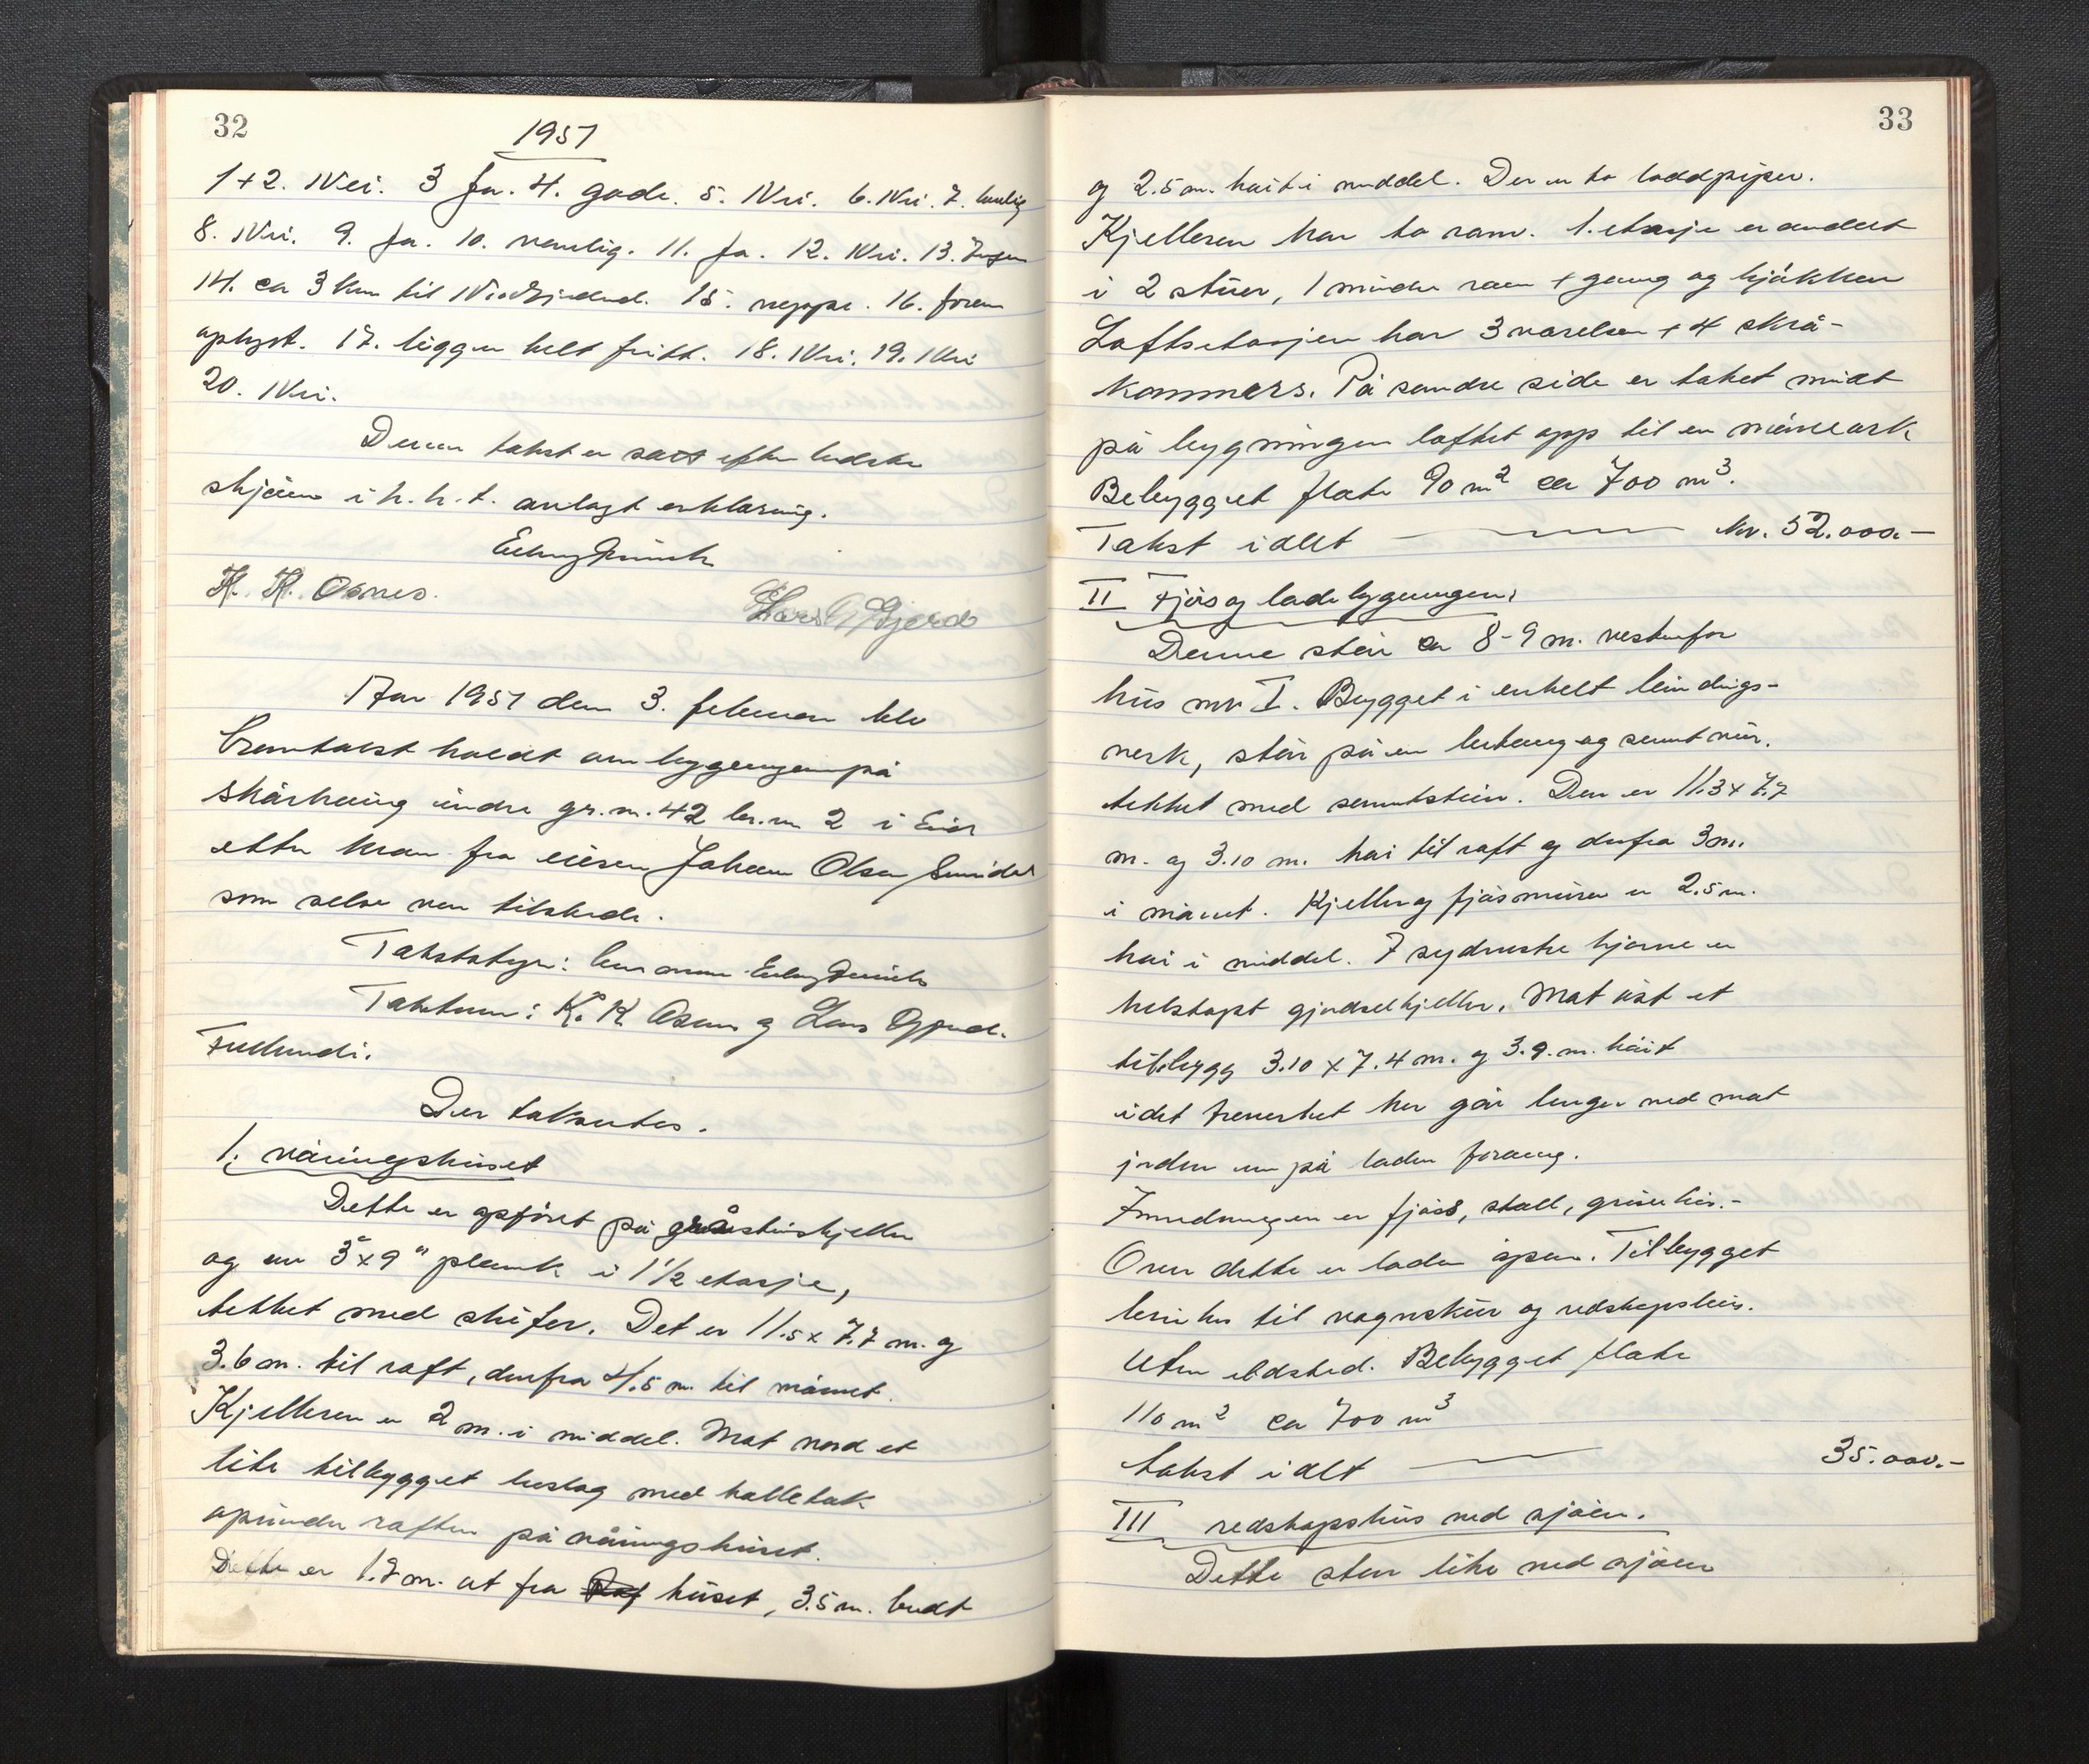 32
1951
1+2. Nei. 3 Ja. 4. gode. 5. Nei. 6. Nei. 7. vanlig
8. Nei. 9. Ja. 10. vanlig. 11. Ja. 12. Nei. 13. Ingen
14. ca 3 km til 15. neppe. 16. foran
oplyst. 17. ligger helt fritt. 18. Nei. 19. Nei
20. Nei.
Denne takst er satt efter bedste
skjøn i h. h. t. avlagt erklæring.
K. K. Osnes.
Lars O Gjerde
Aar 1951 den 3. februar blev
branntakst holdt om bygningen på
Skårhaug indre gr. n. 42 br. n 2 i Eid
etter krav fra eieren Johan Olsen
som selv var tilstede.
Takststyr:
Takstmenn: K. K Osnes og Lars Gjerde.
Der taksertes.
1. våningshuset
Dette er opført på gråsteinskjeller
og av 3"x9" plank i 1½ etasje,
tekket med skifer. Det er 11.5 x 7.7 m. og
3.6 m. til raft, derfra 4.5 m. til mønet.
Kjelleren er 2 m. i middel. Mot nord et
lite tilbygget beslag med halletak
opunder raften på våningshuset.
Dette er 1.7 m. ut fra huset, 3.5 m. bredt
33
og 2.5 m. høit i middel. Der er to loddpiper.
Kjelleren har to rom. 1. etasje er avdelt
i 2 stuer, 1 mindre rom + gang og kjøkken
Loftsetasjen har 3 værelser + 4 skrå-
kammers. På søndre side er taket midt
på bygningen løftet opp til en møneark
Bebygget flate 90 m² ca 700 m³.
Takst i alt kr. 52.000.-
II Fjøs og ladebygningen,
Denne står ca 8-9 m. vestenfor
hus nr I. Bygget i enkelt bindings-
verk, står på en betong og sementmur.
tekket med sementstein. Den er 11.3 x 7.7
m. og 3.10 m. høi til raft og derfra 3 m.
i mønet. Kjeller og fjøsmuren er 2.5 m.
høi i middel. I sydvestre hjørne er
helstøpt gjødselkjeller. Mot øst et
tilbygg 3.10 x 7.4 m. og 3.9. m. høit
idet treverket her går lenger ned mot
jorden enn på laden forøvrig.
Innredningen er fjøs, stall, grisehus.-
Over dette er laden åpen. Tilbygget
benyttes til vognskur og redskapshus.
Uten ildsted. Bebygget flate
110 m² ca 700 m³
takst i alt 35.000.-
III redskapshus ved sjøen.
Dette står like ved sjøen